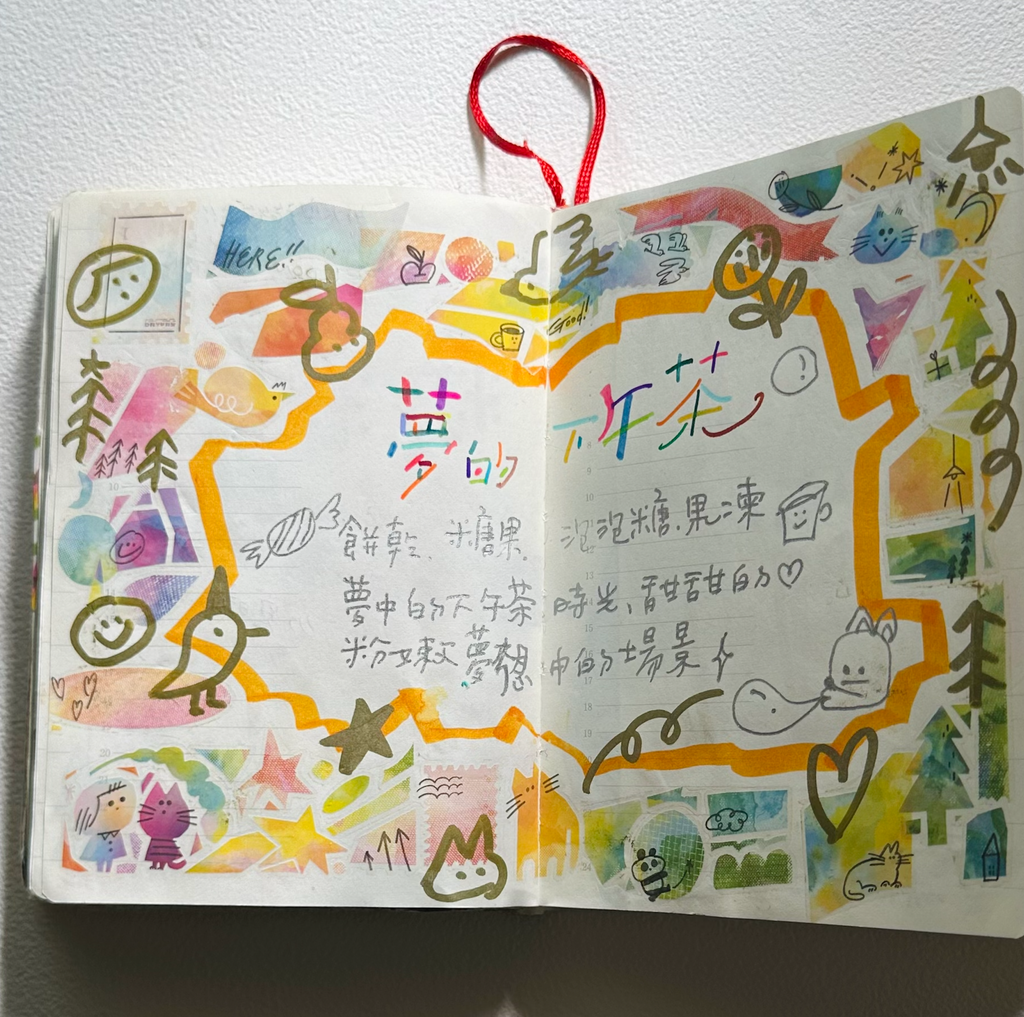 HERE!!
Good!!
夢的下午茶
餅乾、米糖果、泡泡糖、果凍
夢中的下午茶時光、甜甜的♡
粉嫩夢想中的場景